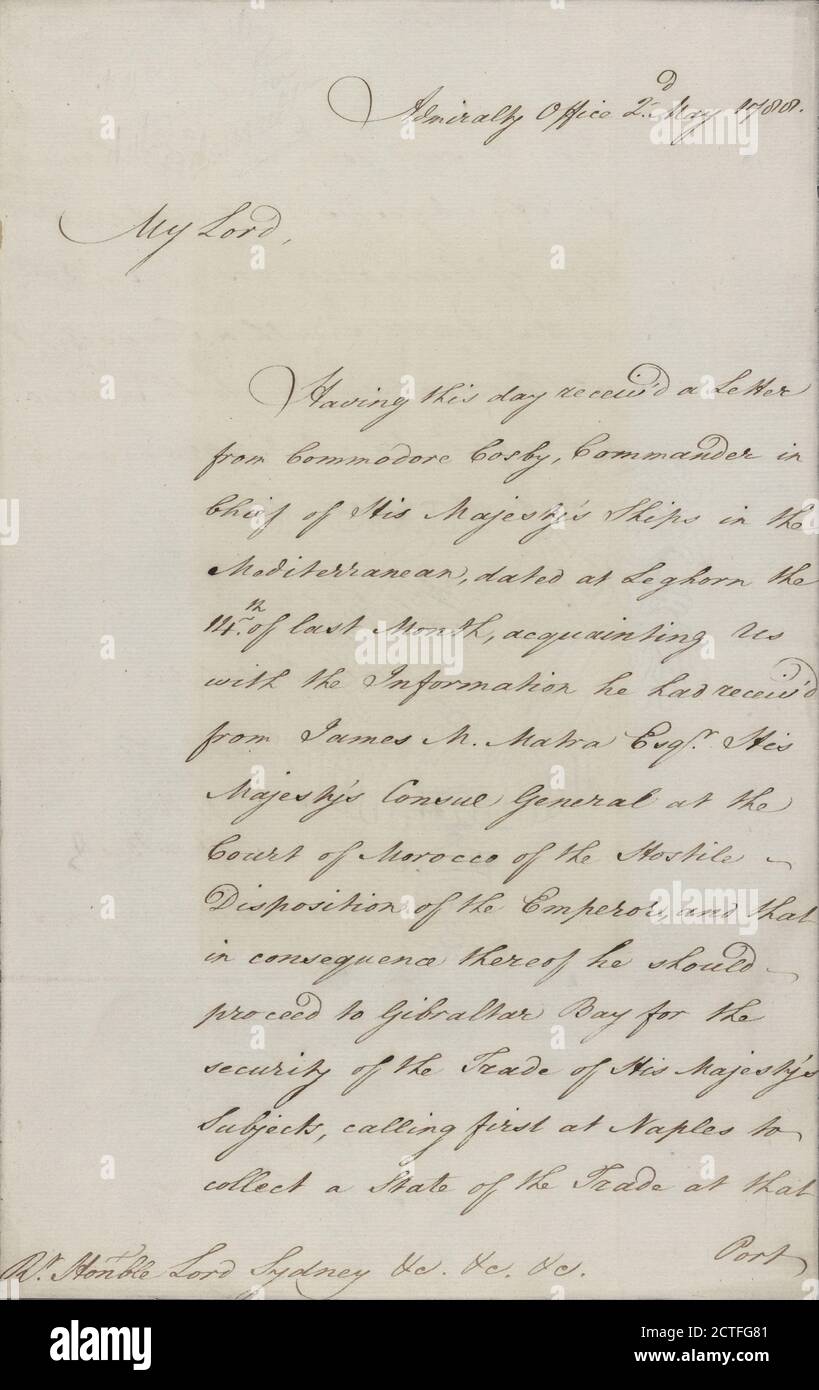 Admiralty Office 2.d May 1788.
My Lord,
Having this day receiv'd a Letter
from Commodore Cosby, Commander in
Chief of His Majesty's Ships in the
Mediterranean, dated at Leghorn the
14th. of last Month, acquainting Us
with the Information he had receiv'd
from James M. Matra Esqr. His
Majesty's Consul General at the
Court of Morocco of the Hostile
Disposition of the Emperor, and that
in consequence thereof he should
proceed to Gibraltar Bay for the
security of the Trade of His Majesty's
Subjects, calling first at Naples to
collect a State of the Trade at that
Port
Rt. Honble Lord Sydney &c. &c. &c.
alamy
Image ID: 2CTFG81
www.alamy.com